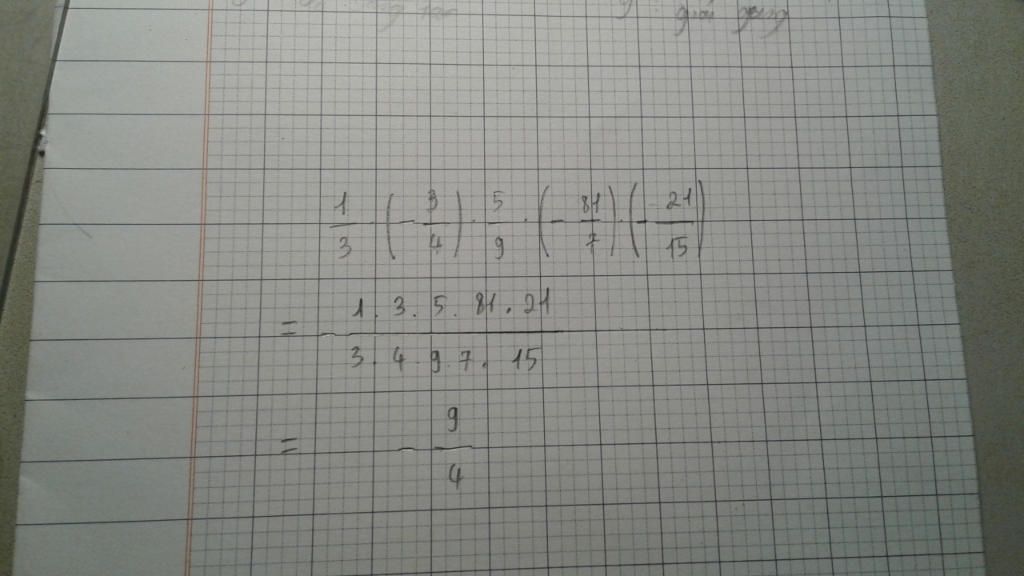 1/3 · (- 3/4) · 5/9 · (- 81/7) · (- 21/15)
= - 1 . 3 . 5 . 81 . 21 / 3 . 4 . 9 . 7 . 15
= - 9/4